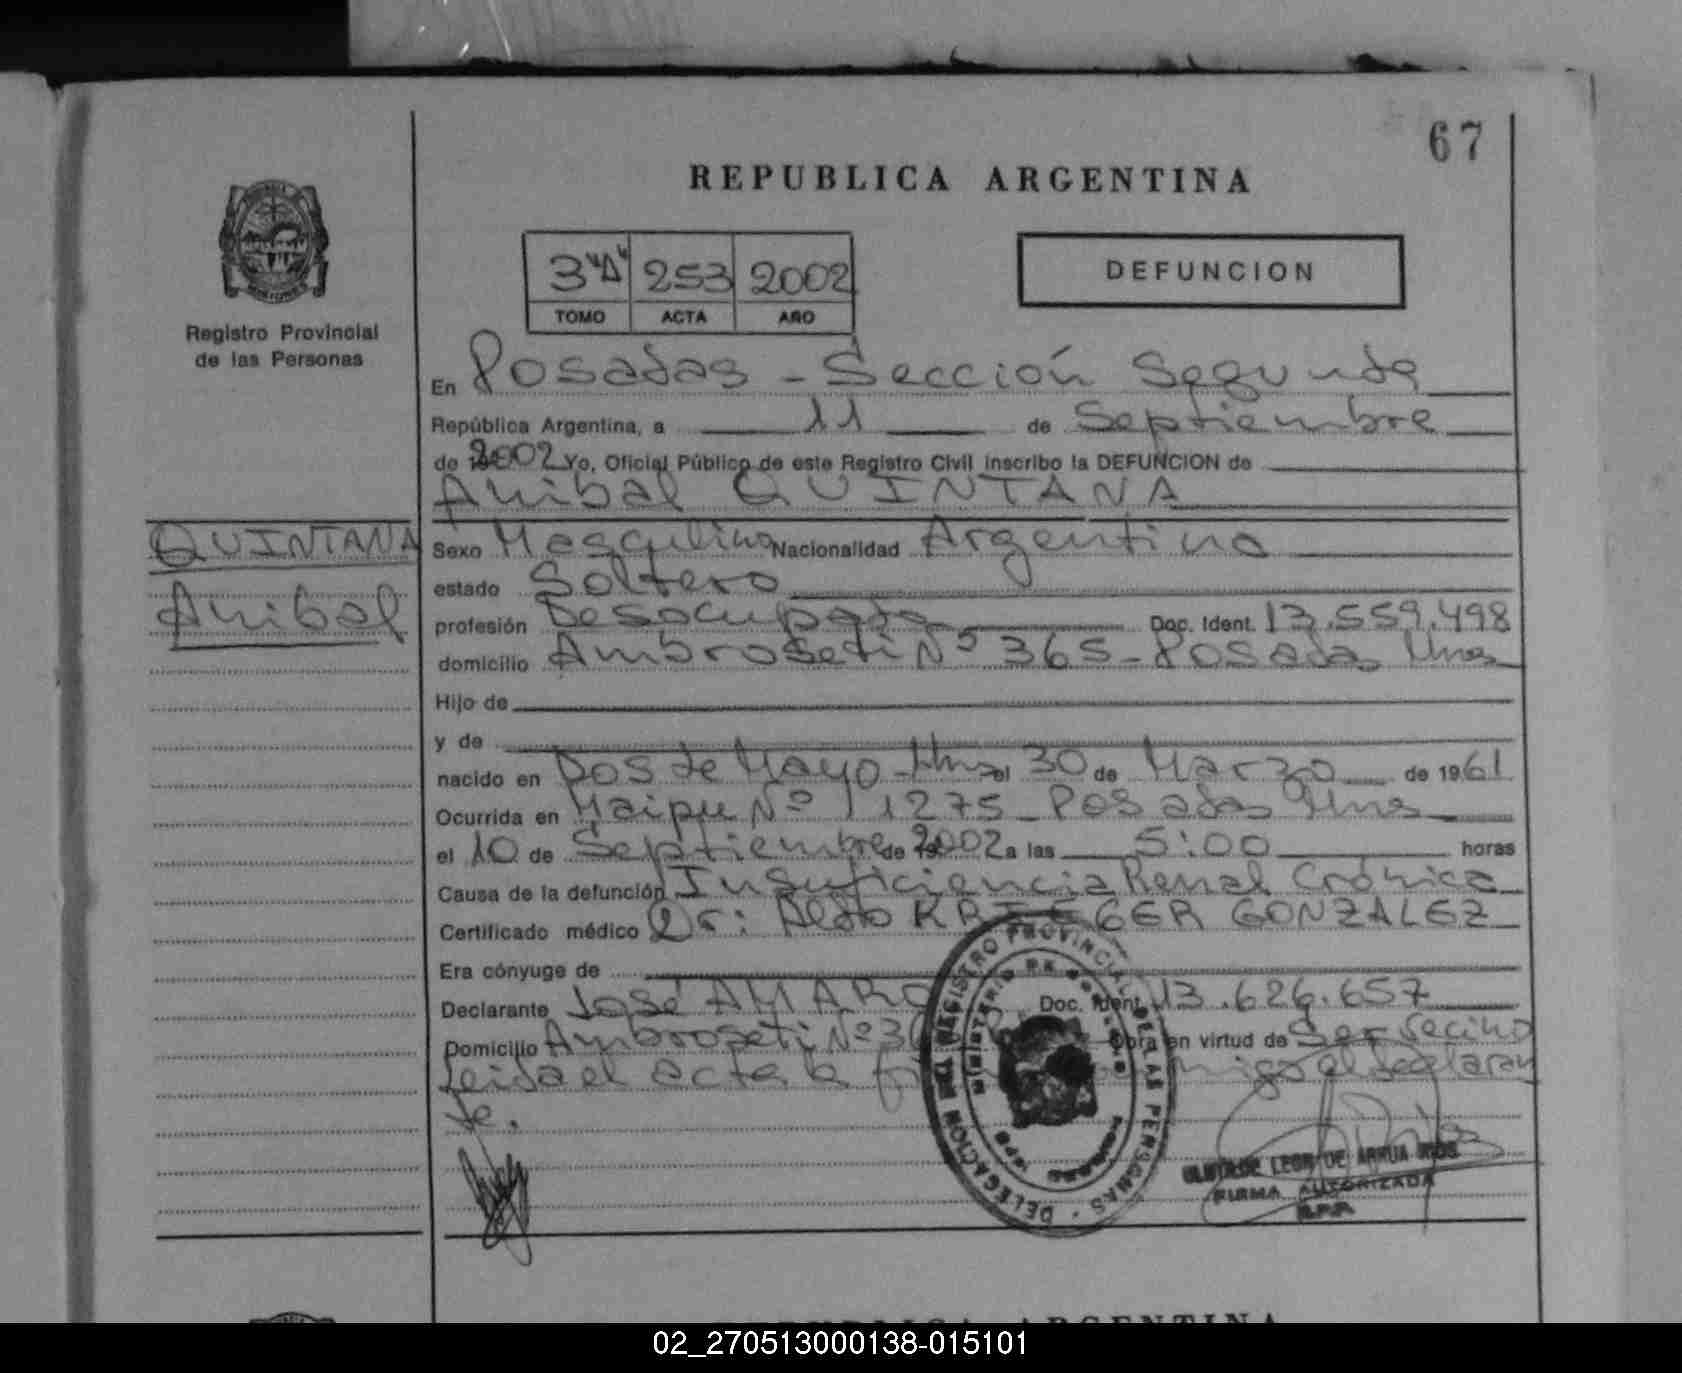 67
REPUBLICA ARGENTINA
3"A" 253 2002
TOMO ACTA AÑO
DEFUNCION
Registro Provincial
de las Personas
En Posadas - Sección Segunda
República Argentina, a 11 de Septiembre
de 2002 Yo, Oficial Público de este Registro Civil inscribo la DEFUNCION de
Anibal QUINTANA
QUINTANA
Anibal
Sexo Masculino Nacionalidad Argentino
estado Soltero
profesión Desocupado Doc. Ident. 13.559.498
domicilio Ambroseti Nº 365 - Posadas Mnes
Hijo de
y de
nacido en Dos de Mayo - Mnes el 30 de Marzo de 1961
Ocurrida en Maipu Nº 1275 - Posadas Mnes
el 10 de Septiembre de 2002 a las 5:00 horas
Causa de la defunción Insuficiencia Renal Crónica
Certificado médico Dr: Aldo KRIEGER GONZALEZ
Era cónyuge de
Declarante José AMARO Doc. Ident. 13.626.657
Domicilio Ambroseti Nº 36 Obra en virtud de Ser Vecino
Leida el acta la conmigo el declaran
te.
DELEGACION DEL REGISTRO PROVINCIAL DE LAS PERSONAS
MINISTERIO DE GOBIERNO
LEON DE ARRUA
FIRMA AUTORIZADA
R.P.P.
REPUBLICA ARGENTINA
02_270513000138-015101